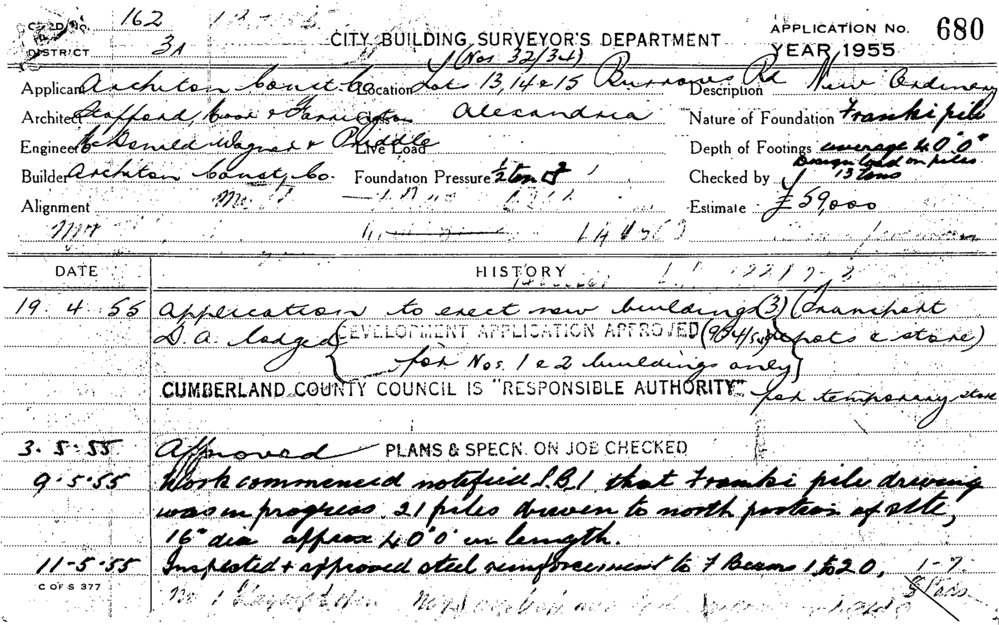 CARD No. 162
DISTRICT 3A
CITY BUILDING SURVEYOR'S DEPARTMENT
APPLICATION No. 680
YEAR 1955
(Nos 32/34)
Applicant Architon Const. Co. Location Lot 13, 14 & 15 Burrows Rd Description New Ordinary
Architect Stafford Moor & Farrington Alexandria Nature of Foundation Franki pile
Engineer McDonald Wagner & Priddle Live Load Depth of Footings average 40'0"
Design load on piles
Builder Architon Const. Co. Foundation Pressure 1/2 ton Checked by 13 tons
Alignment Estimate £59,000
DATE HISTORY
19.4.55 Application to erect new buildings (3) (transport
D.A. lodged DEVELOPMENT APPLICATION APPROVED depots & store)
for Nos. 1 & 2 buildings only
CUMBERLAND COUNTY COUNCIL IS "RESPONSIBLE AUTHORITY" for temporary store
3.5.55 Approved PLANS & SPECN. ON JOB CHECKED
9.5.55 Work commenced notified S.B.I. that Franki pile driving
was in progress. 21 piles driven to north portion of site,
16" dia approx 40'0" in length.
11-5-55 Inspected & approved steel reinforcement to F Beams 1 to 20, 1-7
C OF S 377